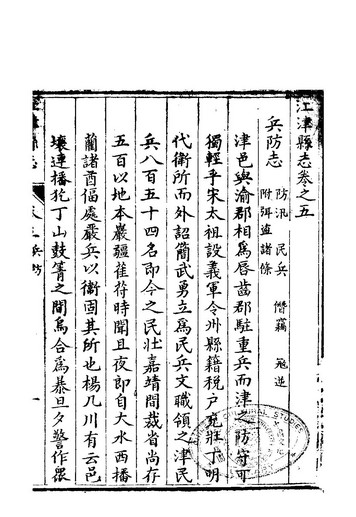 江津縣志卷之五
兵防志
防汛 民兵 僭竊 寇逆
附弭盜諸條
津邑與渝郡相為唇齒郡駐重兵而津之防守可
獨輕乎宋太祖設義軍令州縣籍稅戶充莊丁明
代衛所而外詔簡武勇立為民兵文職領之津民
兵八百五十四名即今之民壯嘉靖間裁省尚存
五百以地本巖疆萑苻時聞且夜郎自大水西播
藺諸酋偪處嚴兵以衛固其所也楊几川有云邑
壤連播犵丁山鼓箐之間烏合為暴旦夕警作眾
縣志
兵防
一